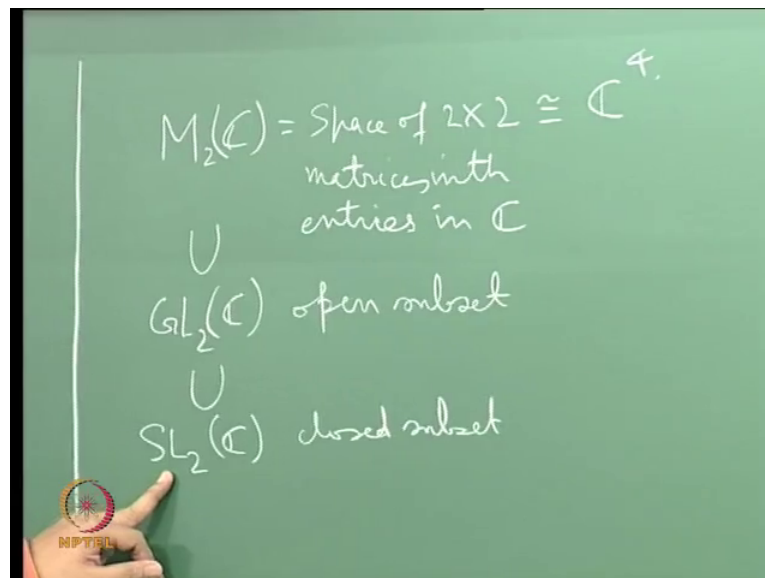 M₂(ℂ) = Space of 2×2 ≅ ℂ⁴.
matrices with
entries in ℂ
∪
GL₂(ℂ) open subset
∪
SL₂(ℂ) closed subset
NPTEL